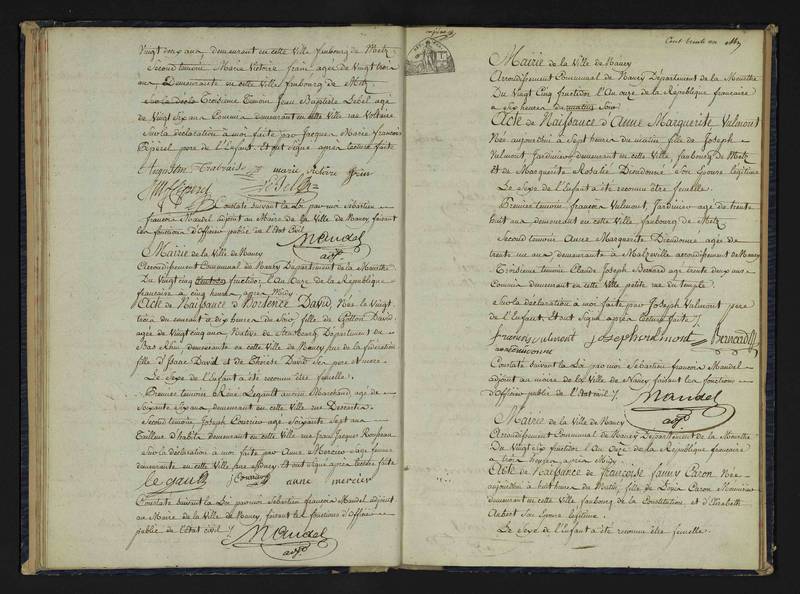 Vingt deux ans demeurant en cette Ville faubourg de Metz
Second temoin Marie Victoire frain agée de Vingt trois
ans Demeurante en cette Ville faubourg de Metz
Troisieme Temoin Jean Baptiste Lebel agé
de Vingt six ans Commis demeurant en cette Ville rue Voltaire
Sur la déclaration à moi faite par Jacques Marie François
pere de l'Enfant. Et ont signé apres lecture faite
marie victoire frain
Lebel
Constaté suivant la Loi par moi Sébastien
françois Mandel adjoint au Maire de la Ville de Nancy faisant
les fonctions d'Officier public de l'Etat Civil
Mandel
adjt
Mairie de la Ville de Nancy
Arrondissement Communal de Nancy Département de la Meurthe
Du Vingt cinq fructidor l'An Onze de la République
française à cinq heures après Midi
Acte de Naissance d'Hortence David, Née le Vingt
trois du courant à dix heures du Soir, fille de Gotton David,
agée de Vingt cinq ans Native de Strasbourg Département du
Bas Rhin, demeurante en cette Ville de Nancy rue de la fédération
fille d'Isaac David et de Thérèse David Ses pere et mere.
Le Sexe de l'Enfant a été reconnu être femelle.
Premier temoin René Legault ancien Marchand, agé de
Soixante Six ans, demeurant en cette Ville rue Descartes.
Second temoin Joseph Courrier agé Soixante Sept ans
tailleur d'habits demeurant en cette Ville rue Jean Jacques Rousseau
Sur la déclaration à moi faite par Anne Mercier sage femme
demeurante en cette Ville rue Sidney. Et ont signé après lecture faite
le gault Courrier anne mercier
Constaté suivant la Loi par moi Sébastien françois Mandel adjoint
au Maire de la Ville de Nancy, faisant les fonctions d'Officier
public de l'Etat civil
Mandel
adjt
Cent trente un
Mairie de la Ville de Nancy
Arrondissement Communal de Nancy Département de la Meurthe
Du Vingt Cinq fructidor l'An onze de la République française
à Six heures du Soir
Acte de Naissance d'Anne Marguerite Vulmont
Née aujourd'hui à Sept heures du matin fille de Joseph
Vulmont Jardinier demeurant en cette Ville, faubourg de Metz
et de Marguerite Rosalie Dieudonné Son Epouse légitime
Le Sexe de l'Enfant a été reconnu être femelle.
Premier temoin françois Vulmont Jardinier agé de trente
huit ans demeurant en cette Ville faubourg de Metz
Second temoin Anne Marguerite Dieudonné agée de
trente un ans demeurante à Malzeville arrondissement de Nancy
Troisieme temoin Claude Joseph Bernard agé trente deux ans
Commis demeurant en cette Ville petite rue du temple.
Sur la déclaration à moi faite par Joseph Vulmont pere
de l'Enfant, Et ont Signé après lecture faite
francois vulmont Joseph vulmont Bernard
Constaté suivant la Loi par moi Sébastien françois Mandel
adjoint au maire de la Ville de Nancy faisant les fonctions
d'Officier public de l'Etat civil
Mandel
adjt
Mairie de la Ville de Nancy
Arrondissement Communal de Nancy Département de la Meurthe
Du Vingt six fructidor l'An Onze de la République française
à trois heures après Midi
Acte de Naissance de Françoise fanny Caron Née
aujourd'hui à huit heures du Matin, fille de Caron
demeurant en cette Ville faubourg de la Constitution, et d'Elisabeth
Aubert Son Epouse légitime.
Le Sexe de l'Enfant a été reconnu être femelle.